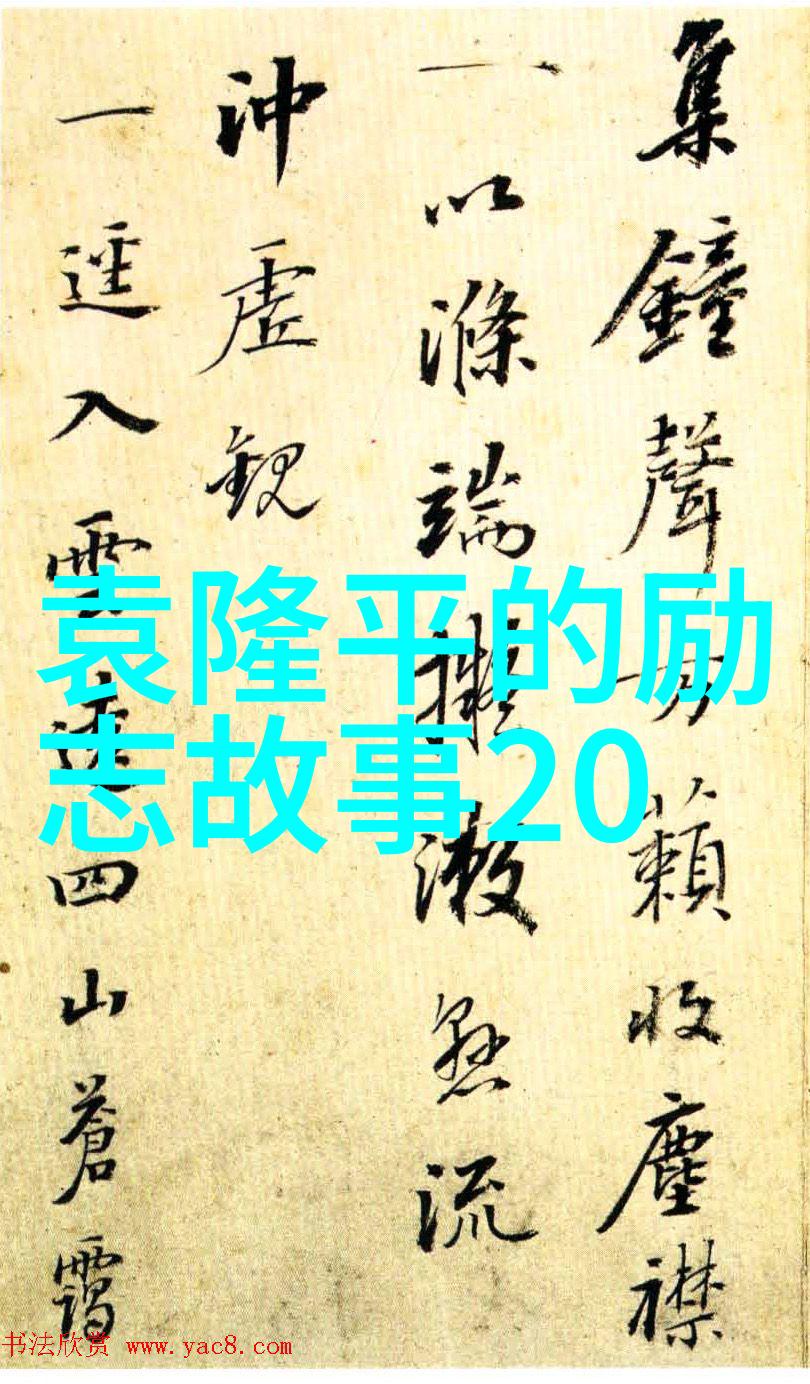 集鐘聲万籟收塵襟
一以滌端擬漱懸流
沖虛觀
一逕入雲邃四山蒼靄
袁隆平的励
志故事20
书法欣赏 www.yac8.com